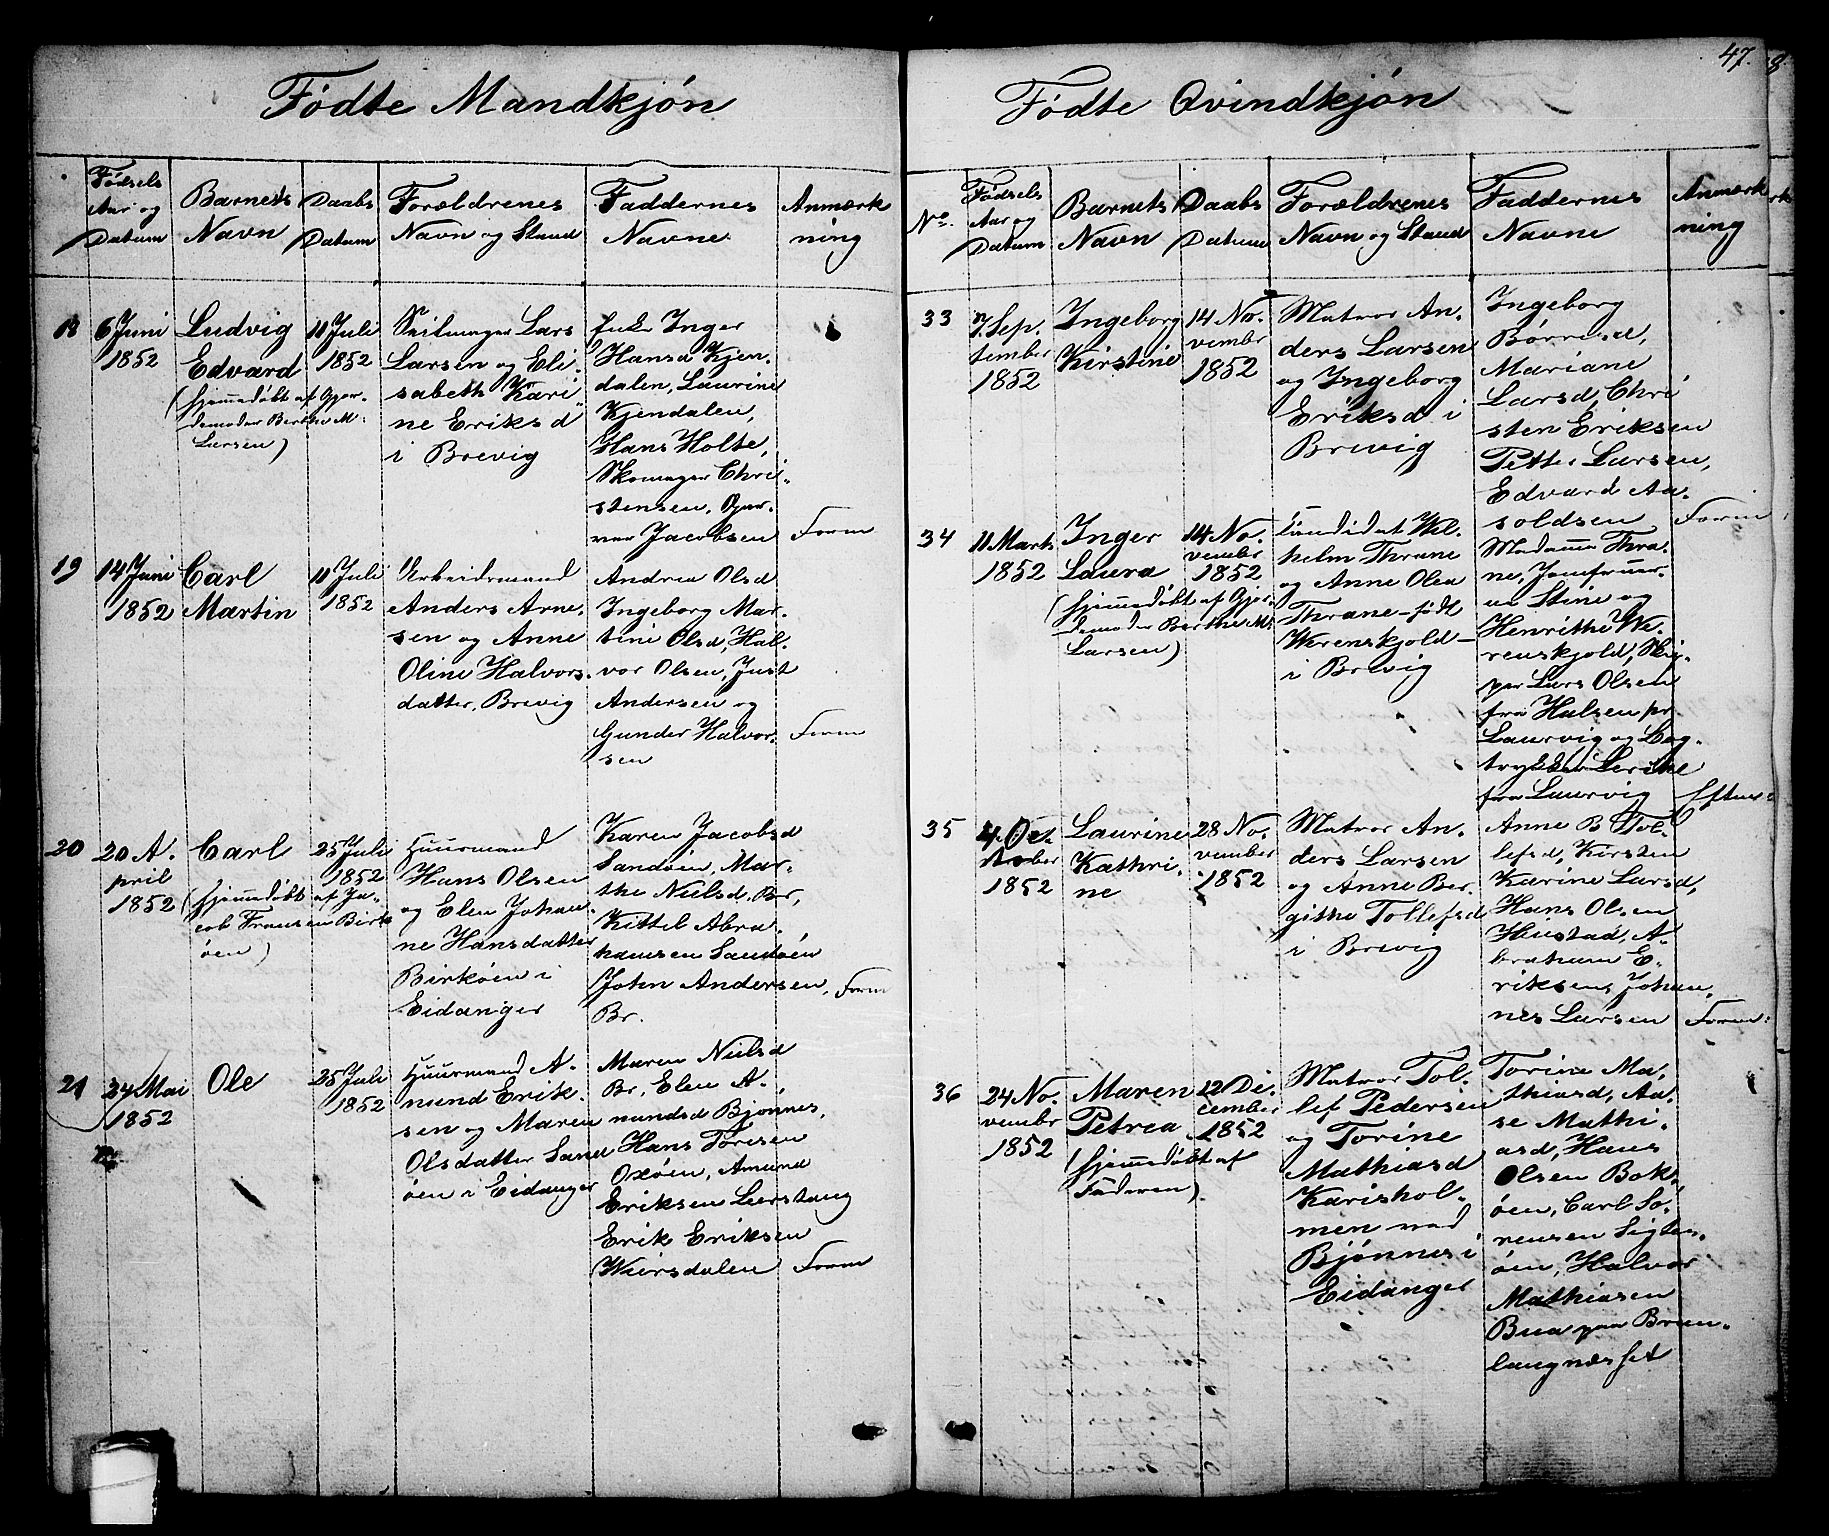 Fødte Mandkjøn
Fødsels
Aar og
Datum
Barnets
Navn
Daabs
Datum
Forældrenes
Navn og Stand
Faddernes
Navne
Anmærk
ning
18
6 Juni
1852
Ludvig
Edvard
(hjemmedøbt af Gjor-
demoder Berthe M:
Larsen)
11 Juli
1852
Seilmager Lars
Larsen og Eli-
sabeth Kari-
ne Eriksd
i Brevig
Inger
Hansd Kjen-
dalen, Laurine
Kjendalen,
Hans Holte,
Skomager Chri-
stensen, Gun-
nar Jacobsen
Form
19
14 Juni
1852
Carl
Martin
11 Juli
1852
Arbeidsmand
Anders Arne-
sen og Anne
Oline Halvors-
datter, Brevig
Andrea Olsd
Ingeborg Mar-
tine Olsd, Hal-
vor Olsen, Just
Andersen og
Gunder Halvor-
sen
Form
20
20 A-
pril
1852
Carl
(hjemmedøbt af Ja-
cob Fransen Birk-
øen)
25 Juli
1852
Huusmand
Hans Olsen
og Elen Johan-
ne Hansdatter
Birkøen i
Eidanger
Karen Jacobsd
Sandøen, Mar-
the Nielsd. Br,
Kittel Abra-
hamsen Sandøen
John Andersen,
Br.
Form
21
24 Mai
1852
Ole
25 Juli
1852
Huusmand A-
mund Erik-
sen og Maren
Olsdatter Sand-
øen i Eidanger
Maren Nielsd
Br, Elen A-
mundsd Bjønnes,
Hans Toresen
Oxøen, Amund
Eriksen Leerstang
Erik Eriksen
Wiersdalen
Form
47.
Fødte Qvindkjøn
No.
Fødsels
Aar og
Datum
Barnets
Navn
Daabs
Datum
Forældrenes
Navn og Stand
Faddernes
Navne
Anmærk
ning
33
7. Sep-
tember
1852
Ingeborg
Kirstine
14 No-
vember
1852
Matros An-
ders Larsen
og Ingeborg
Eriksd i
Brevig
Ingeborg
Børresd,
Mariane
Larsd, Chri-
sten Eriksen
Petter Larsen,
Edvard Aa-
soldsen
Form
34
11 Marts
1852
Inger
Laura
(hjemmedøbt af Gjor-
demoder Berthe M:
Larsen)
14 No-
vembr
1852
Candidat Wil-
helm Thrane
og Anne Olea
Thrane - født
Werenskjold -
i Brevig
Madame Thra-
ne, Jomfruer-
ne Stine og
Henrithe We-
renskjold, Skip-
per Lars Olsen
fra Halsen pr
Laurvig og Bog-
trykker Lerche
fra Laurvig
Efterm:
35
4 Oc-
tober
1852
Laurine
Kathri-
ne
28 No-
vember
1852
Matros An-
ders Larsen
og Anne Ber-
githe Tollefsd
i Brevig
Anne B Tol-
lefsd, Kirsten
Karine Larsd,
Hans Olsen
Hustad, A-
braham E-
riksen, Johan-
nes Larsen
Form:
36
24 No-
vembr
1852
Maren
Petrea
(hjemmedøbt af
Faderen)
12 De-
cember
1852
Matros Tol-
lef Pedersen
og Torine
Mathiasd
Karishol-
men ved
Bjønnes i
Eidanger
Torine Ma-
thiasd, Aa-
se Mathi-
asd, Hans
Olsen Bak-
øen, Carl So-
rensen Sigtes-
øen, Halvor
Mathiasen
Bua paa Brun-
langnæsset